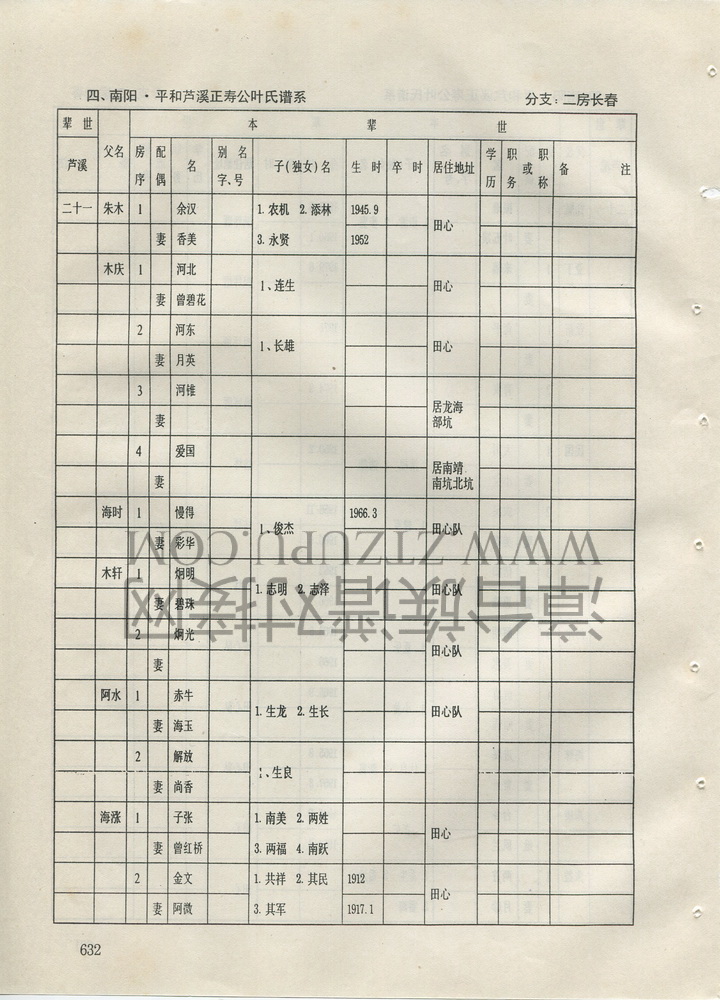 四、南阳·平和芦溪正寿公叶氏谱系 分支：二房长春
辈世 本 辈 世
芦溪 父名 房序 配偶 名 别名字、号 子(独女)名 生时 卒时 居住地址 学历 职务 或 职称 备注
二十一 朱木 1 余汉 1.农机 2.添林 1945.9 田心
妻 香美 3.永贤 1952
木庆 1 河北 1、连生 田心
妻 曾碧花
2 河东 1、长雄 田心
妻 月英
3 河锥 居龙海
妻 部坑
4 爱国 居南靖
妻 南坑北坑
海时 1 慢得 1、俊杰 1966.3 田心队
妻 彩华
木轩 1 炯明 1.志明 2.志泽 田心队
妻 碧珠
2 炯光 田心队
妻
阿水 1 赤牛 1.生龙 2.生长 田心队
妻 海玉
2 解放 1、生良
妻 尚香
海涨 1 子张 1.南美 2.两姓 田心
妻 曾红桥 3.两福 4.南跃
2 金文 1.共祥 2.其民 1912 田心
妻 阿微 3.其军 1917.1
632
漳台族谱对接网
WWW.ZTZUPU.COM